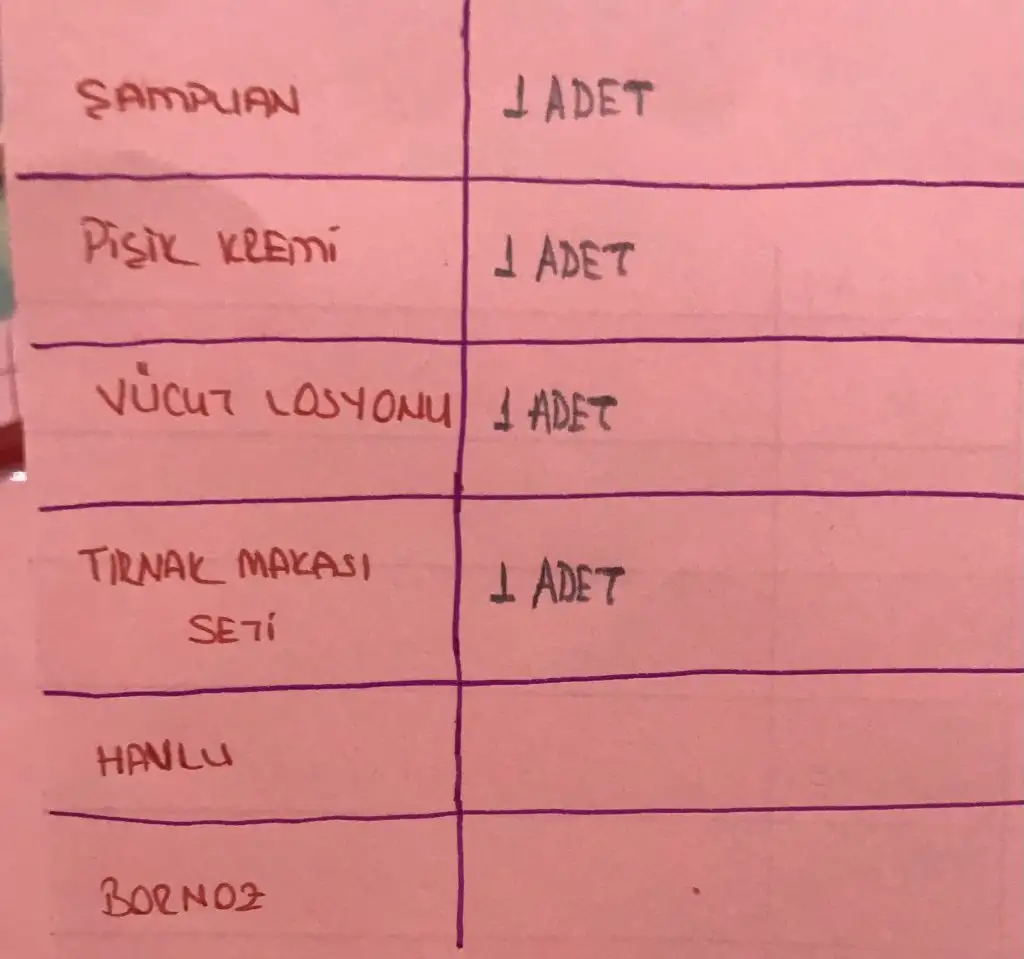 ŞAMPUAN 1 ADET
PİŞİK KREMİ 1 ADET
VÜCUT LOSYONU 1 ADET
TIRNAK MAKASI 1 ADET
SETİ
HAVLU
BORNOZ